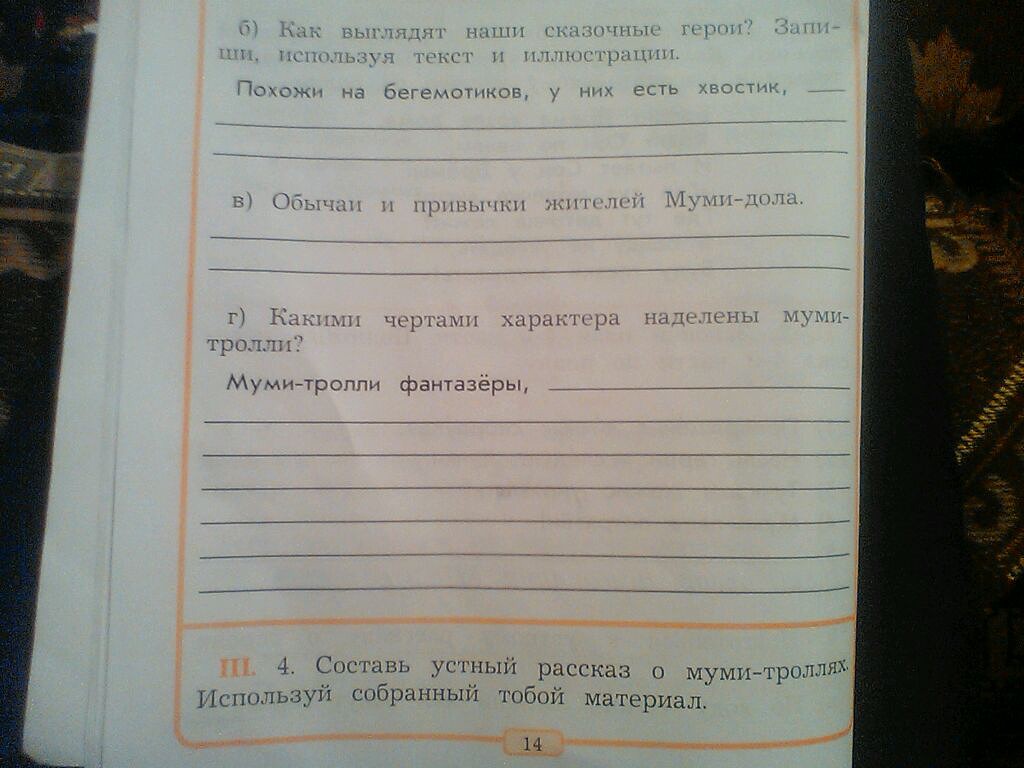 б) Как выглядят наши сказочные герои? Запи-
ши, используя текст и иллюстрации.
Похожи на бегемотиков, у них есть хвостик,
в) Обычаи и привычки жителей Муми-дола.
г) Какими чертами характера наделены муми-
тролли?
Муми-тролли фантазёры,
III. 4. Составь устный рассказ о муми-троллях.
Используй собранный тобой материал.
14